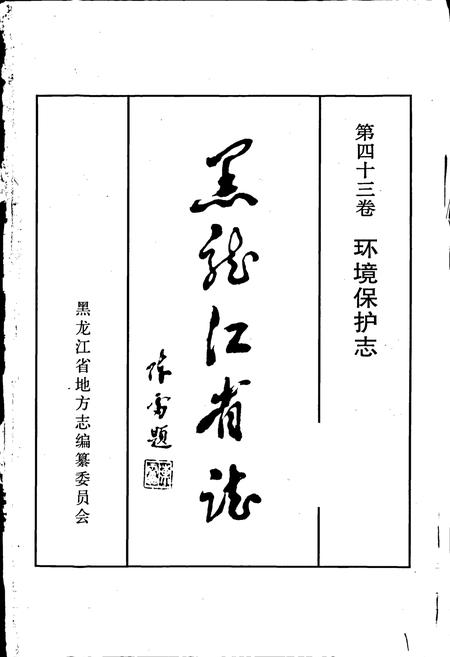 第四十三卷 环境保护志
黑龙江省志
陈雷题
黑龙江省地方志编纂委员会